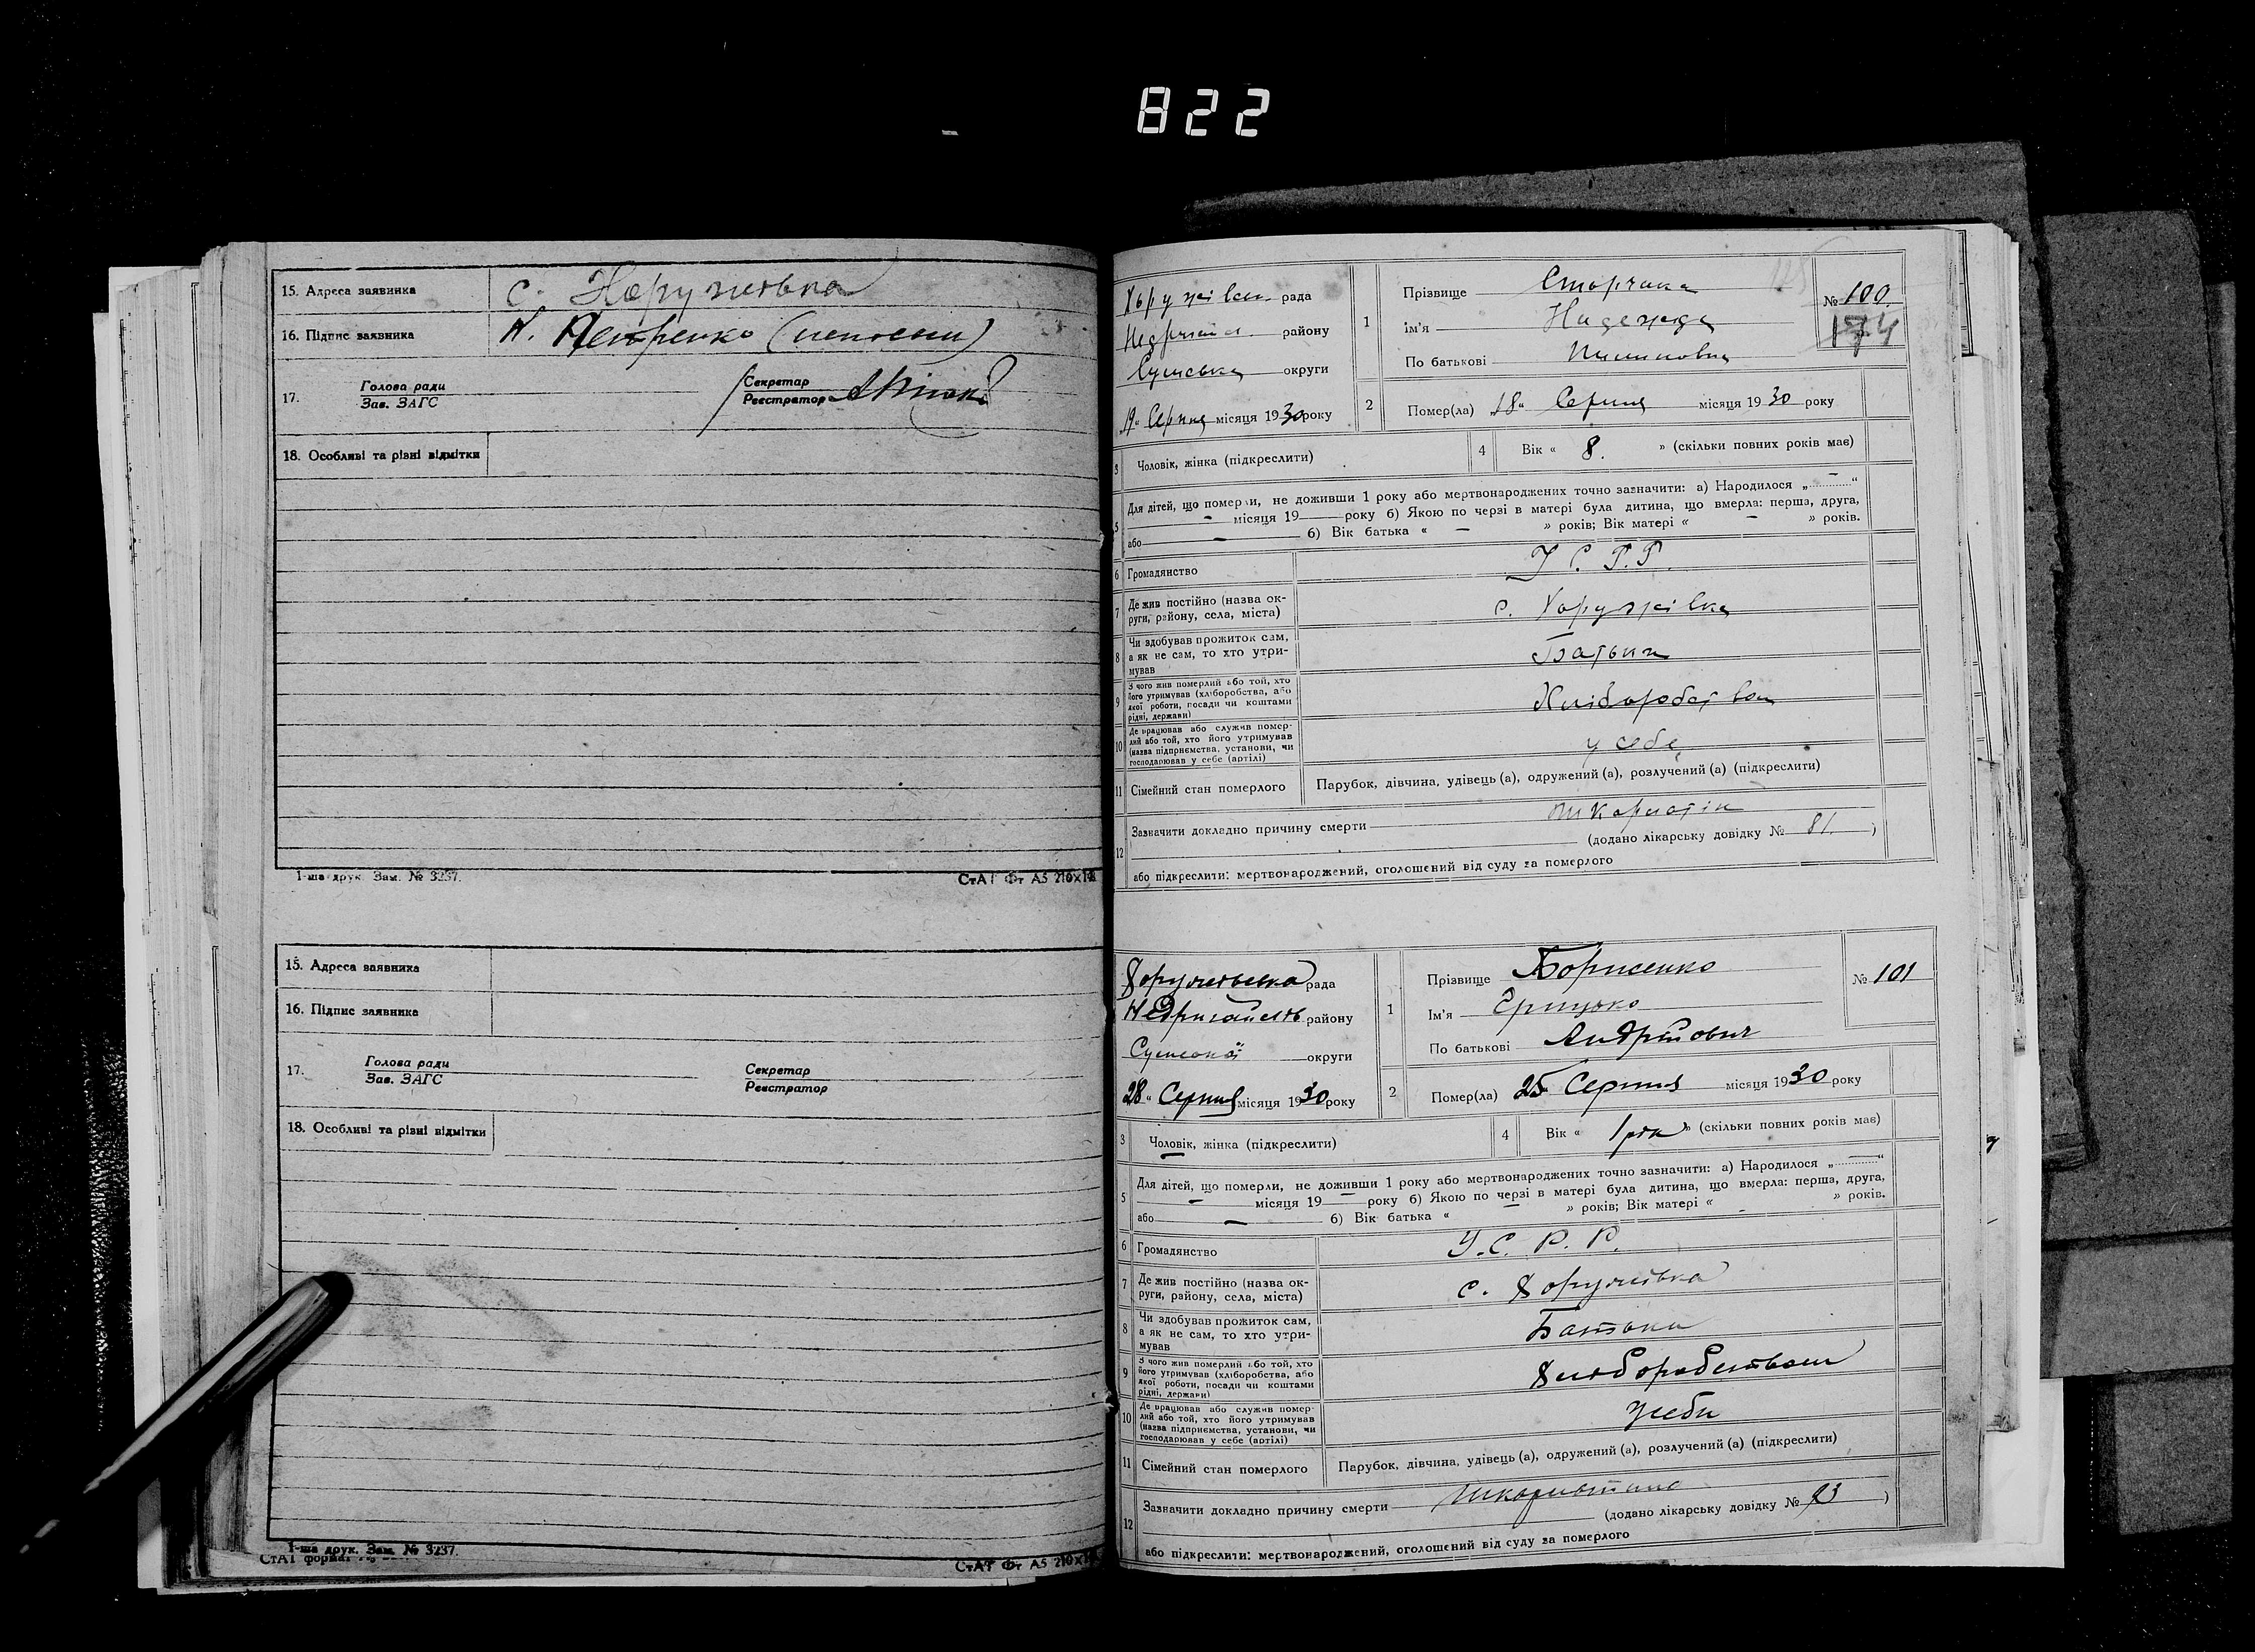 822
15. Адреса заявника с. Хоружівка
16. Підпис заявника Петренко
17. Голова ради
Зав. ЗАГС
Секретар
Реєстратор
18. Особливі та різні відмітки
1-ша друк. Зам. № 3237.
СтАТ Фт А5 210×1
15. Адреса заявника
16. Підпис заявника
17. Голова ради
Зав. ЗАГС
Секретар
Реєстратор
18. Особливі та різні відмітки
1-ша друк. Зам. № 3237.
СтАТ формат
СтАТ Фт А5 210×1
рада
району
Сумська округи
19 Серпня місяця 1930 року
1
Прізвище
Ім'я Надежда
По батькові Пилиповна
№ 100
174
2
Помер(ла) "18" Серпня місяця 1930 року
3 Чоловік, жінка (підкреслити)
4 Вік « 8. » (скільки повних років має)
5 Для дітей, що померли, не доживши 1 року або мертвонароджених точно зазначити: а) Народилося „ — “
— місяця 19 року б) Якою по черзі в матері була дитина, що вмерла: перша, друга,
або — б) Вік батька « — » років; Вік матері « — » років.
6 Громадянство У.С.Р.Р.
7 Де жив постійно (назва ок-
руги, району, села, міста) с. Хоружівка
8 Чи здобував прожиток сам,
а як не сам, то хто утри-
мував Батьки
9 З чого жив померлий або той, хто
його утримував (хліборобства, або
якої роботи, посади чи коштами
рідні, держави) Хліборобством
10 Де працював або служив помер-
лий або той, хто його утримував
(назва підприємства, установи, чи
господарював у себе (артілі) у себе
11 Сімейний стан померлого Парубок, дівчина, удівець (а), одружений (а), розлучений (а) (підкреслити)
12 Зазначити докладно причину смерти
(додано лікарську довідку № 81. )
або підкреслити: мертвонароджений, оголошений від суду за померлого
Хоружівська рада
району
Сумської округи
28" Серпня місяця 1930 року
1
Прізвище Борисенко
Ім'я Грицько
По батькові Андрійович
№ 101
2
Помер(ла) 25" Серпня місяця 1930 року
3 Чоловік, жінка (підкреслити)
4 Вік « 1 рік » (скільки повних років має)
5 Для дітей, що померли, не доживши 1 року або мертвонароджених точно зазначити: а) Народилося „ — “
— місяця 19 — року б) Якою по черзі в матері була дитина, що вмерла: перша, друга,
або — б) Вік батька « — » років; Вік матері « — » років.
6 Громадянство У.С.Р.Р.
7 Де жив постійно (назва ок-
руги, району, села, міста) с. Хоружівка
8 Чи здобував прожиток сам,
а як не сам, то хто утри-
мував Батьки
9 З чого жив померлий або той, хто
його утримував (хліборобства, або
якої роботи, посади чи коштами
рідні, держави) Хліборобством
10 Де працював або служив помер-
лий або той, хто його утримував
(назва підприємства, установи, чи
господарював у себе (артілі)
11 Сімейний стан померлого Парубок, дівчина, удівець (а), одружений (а), розлучений (а) (підкреслити)
12 Зазначити докладно причину смерти
(додано лікарську довідку № )
або підкреслити: мертвонароджений, оголошений від суду за померлого